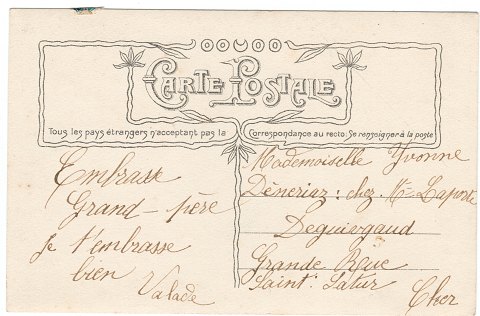 CARTE POSTALE
Tous les pays étrangers n'acceptant pas la Correspondance au recto. Se renseigner à la poste
Embrasse
Grand-père
je t'embrasse
bien
Valade
Mademoiselle Yvonne
chez Mme Laporte
Grande Rue
Saint Satur
Cher